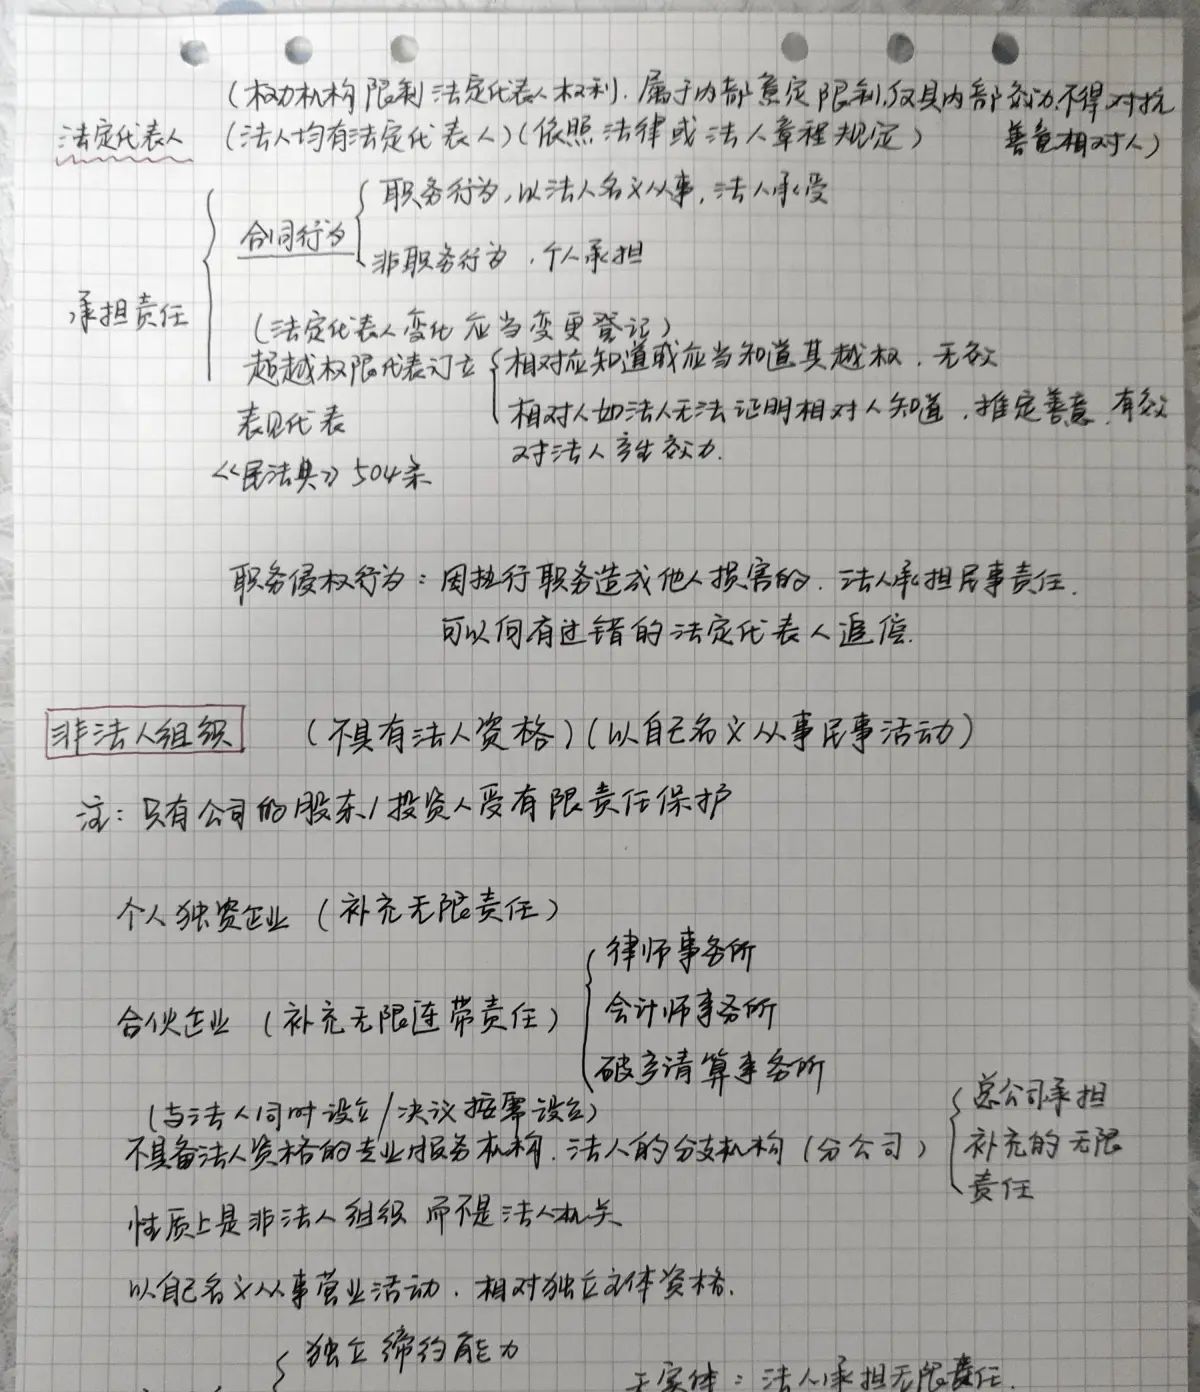 (权力机构限制法定代表人权利.属于内部意定限制,仅具内部效力.不得对抗
善意相对人)
法定代表人 (法人均有法定代表人)(依照法律或法人章程规定)
承担责任
合同行为
职务行为,以法人名义从事,法人承受
非职务行为,个人承担
(法定代表人变化应当变更登记)
超越权限代表订立
相对应知道或应当知道其越权.无效
表见代表
相对人如法人无法证明相对人知道.推定善意.有效
对法人产生效力.
《民法典》504条
职务侵权行为:因执行职务造成他人损害的.法人承担民事责任.
可以向有过错的法定代表人追偿.
非法人组织 (不具有法人资格)(以自己名义从事民事活动)
注:只有公司的股东/投资人受有限责任保护
个人独资企业(补充无限责任)
合伙企业(补充无限连带责任)
律师事务所
会计师事务所
破产清算事务所
(与法人同时设立/决议按需设立)
不具备法人资格的专业服务机构.法人的分支机构(分公司)
总公司承担
补充的无限
责任
性质上是非法人组织而不是法人机关
以自己名义从事营业活动.相对独立主体资格.
独立缔约能力
无实体:法人承担无限责任.